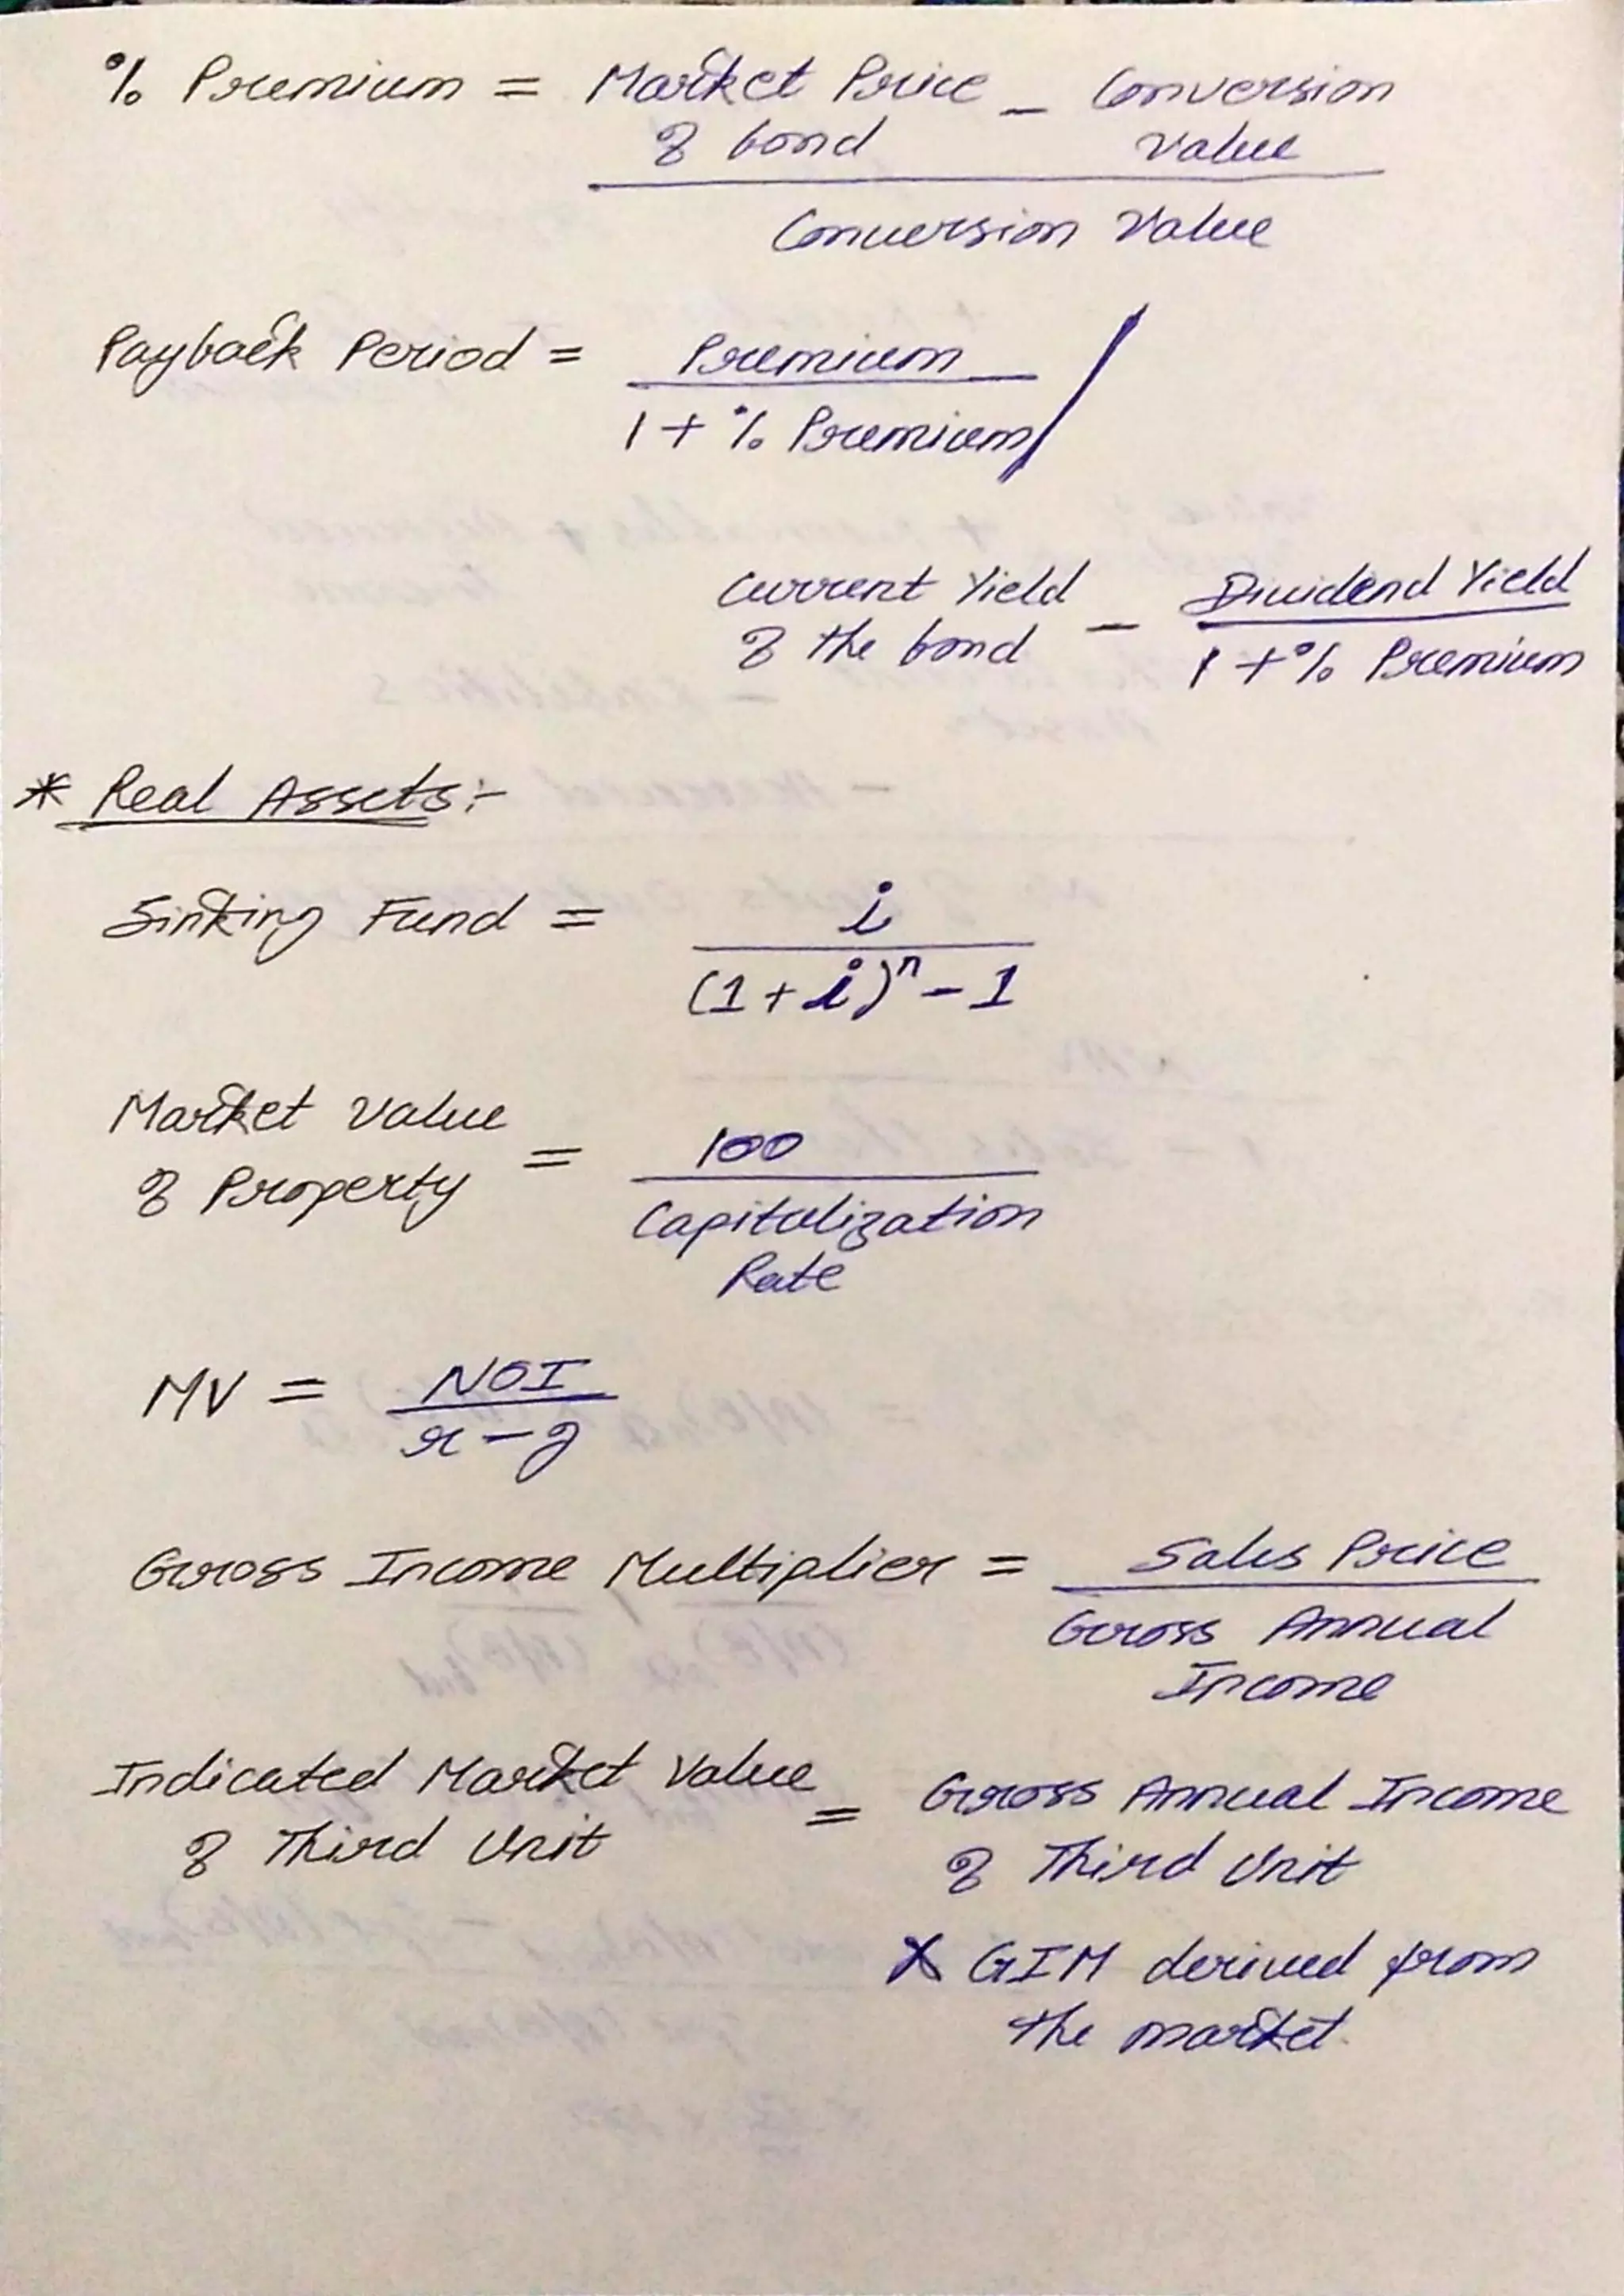 % Premium = Market Price - Conversion
of bond Value
Conversion Value
Payback Period = Premium /
1 + % Premium
Current Yield - Dividend Yield
of the bond 1 + % Premium
* Real Assets:-
Sinking Fund = i
(1 + i)^n - 1
Market Value
of Property = 100
Capitalization
Rate
MV = NOI
r - g
Gross Income Multiplier = Sales Price
Gross Annual
Income
Indicated Market Value = Gross Annual Income
of Third Unit of Third Unit
X GIM derived from
the market.